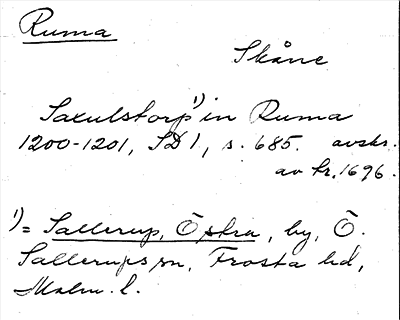 Ruma
Skåne
Saxulstorp¹) in Ruma
1200-1201, SD 1, s. 685. avskr.
av kr. 1696.
¹) = Sallerup, Östra, by, Ö.
Sallerups sn, Frosta hd,
Malm. l.